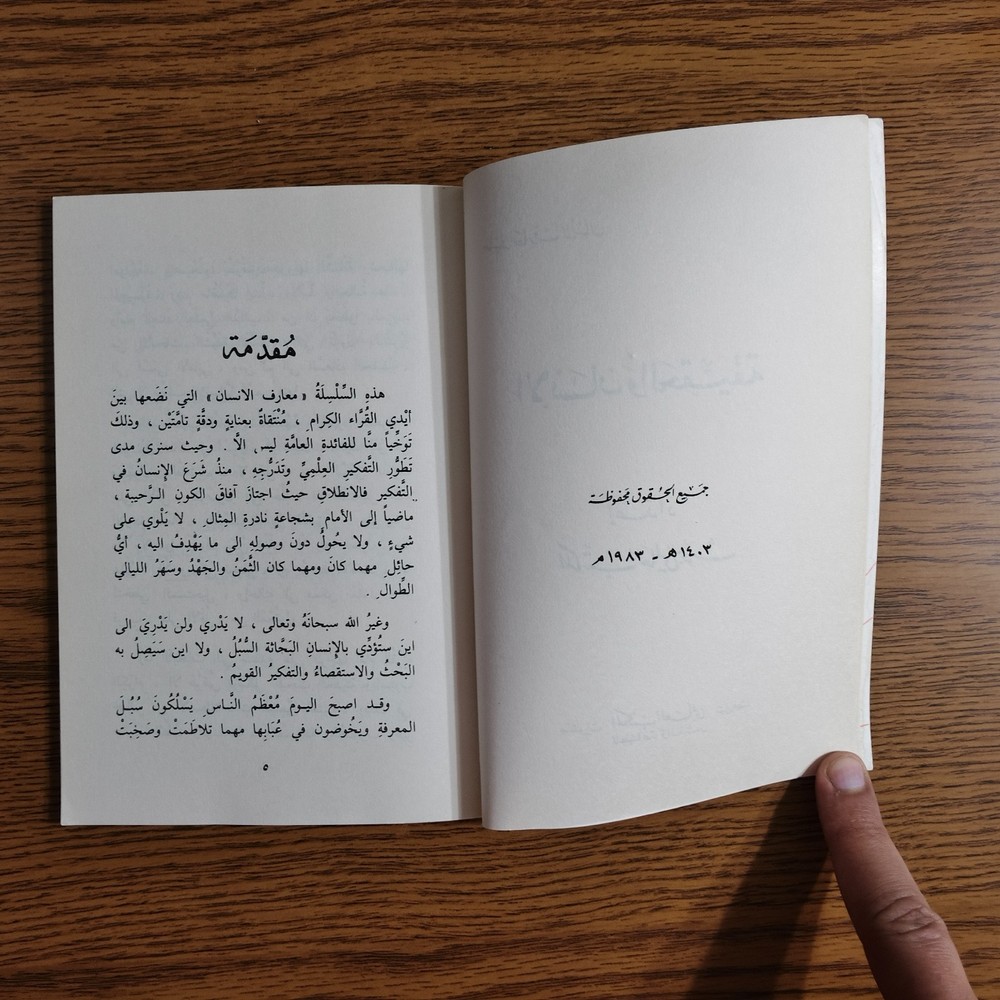 جميع الحقوق محفوظة
١٤٠٣ هـ - ١٩٨٣ م
مُقدّمَة
هذهِ السِّلْسِلَةُ « معارف الانسان » التي نَضَعها بينَ
أيْدي القُرَّاء الكِرام ِ ، مُنْتَقاةٌ بعنايةٍ ودقَّةٍ تامَّتَيْن ، وذلكَ
تَوَخِّياً منَّا للفائدةِ العامَّةِ ليس الاَّ . وحيث سنرى مدى
تَطَوُّرِ التَّفكيرِ العِلْمِيِّ وتَدَرُّجِهِ ، منذُ شَرَعَ الإنسانُ في
التَّفكيرِ فالانطلاقِ حيثُ اجتازَ آفاقَ الكونِ الرَّحيبة ،
ماضياً إلى الأمام ِ بشجاعةٍ نادرةِ المِثال ِ ، لا يَلْوي على
شيءٍ ، ولا يحُولُ دونَ وصولِهِ الى ما يَهْدِفُ اليه ، أيُّ
حائِل ٍ مهما كانَ ومهما كان الثَّمَنُ والجَهْدُ وسَهَرُ الليالي
الطِّوال ِ .
وغيرُ الله سبحانَهُ وتعالى ، لا يَدْري ولن يَدْرِيَ الى
اينَ ستُؤدِّي بالإنسانِ البَحَّاثة السُّبُلُ ، ولا اين سَيَصِلُ به
البَحْثُ والاستقصاءُ والتفكيرُ القويمُ .
وقد اصبحَ اليومَ مُعْظَمُ النَّاس ِ يَسْلُكُونَ سُبُلَ
المعرفةِ ويَخُوضون في عُبَابِها مهما تلاطَمَتْ وصَخِبَتْ
٥